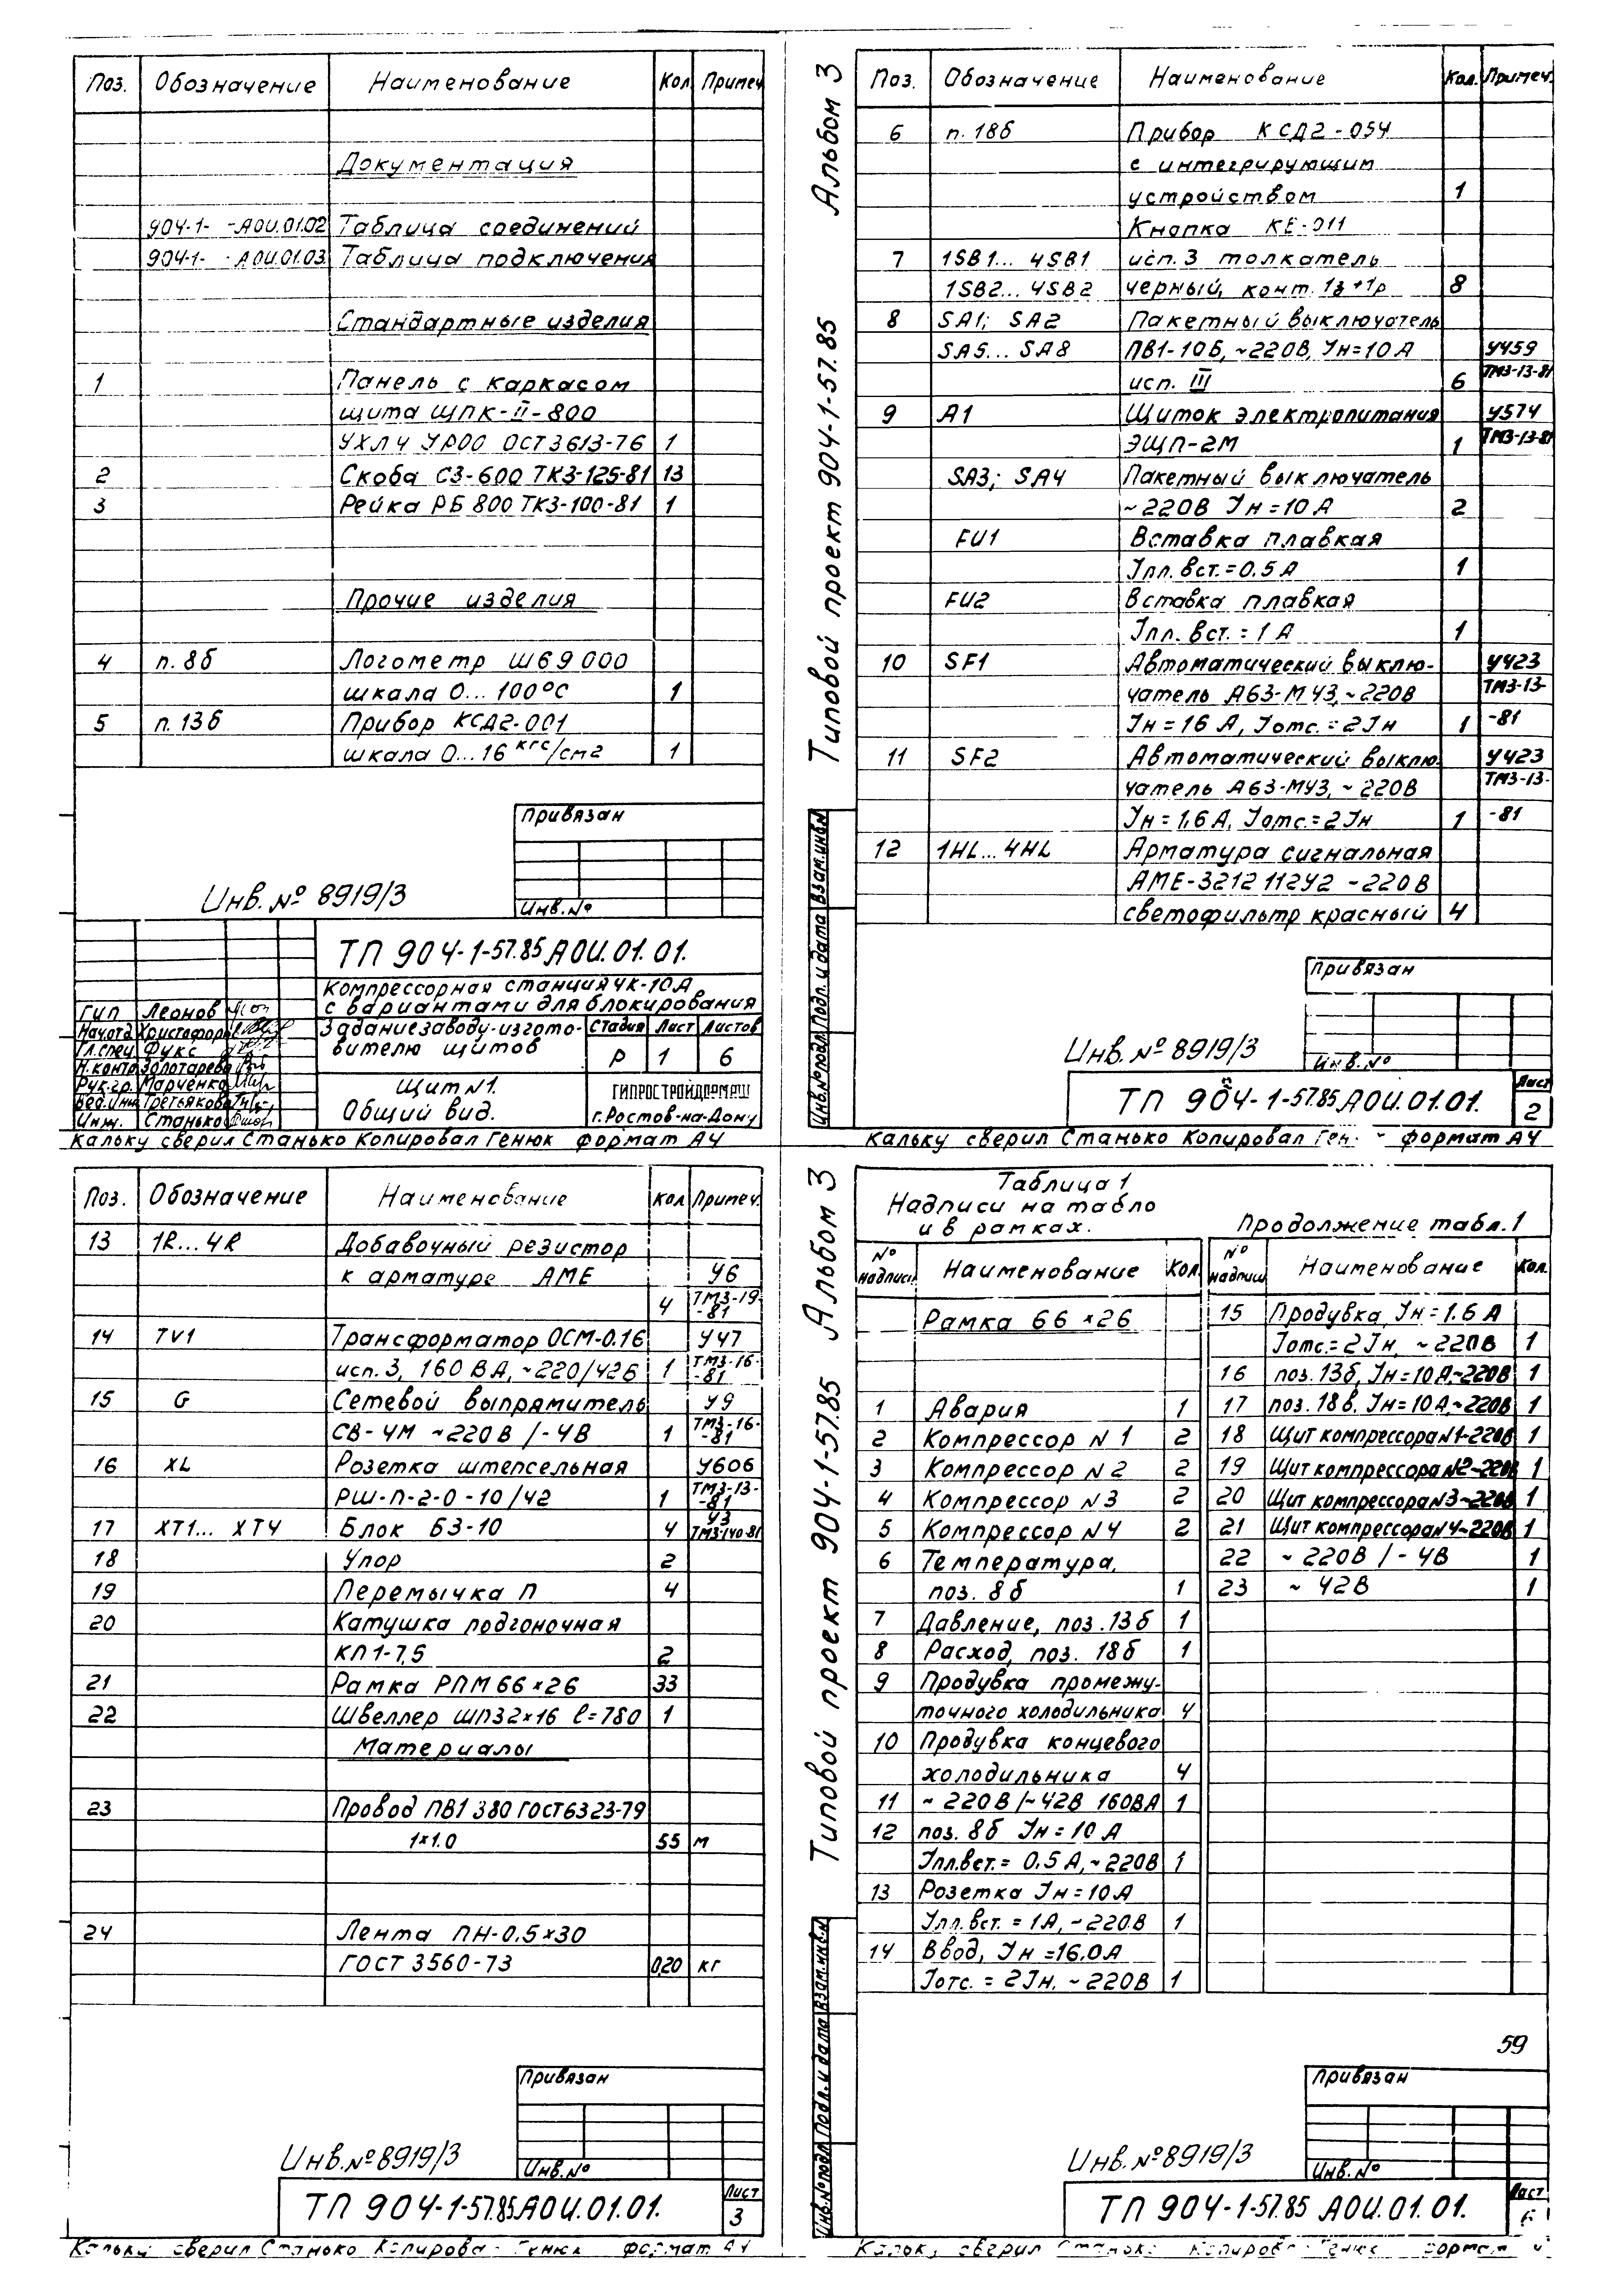 Поз. Обозначение Наименование Кол Примеч
Документация
904-1- -АОИ.01.02 Таблица соединений
904-1- -АОИ.01.03 Таблица подключения
Стандартные изделия
1 Панель с каркасом
щита ЩПК-II-800
УХЛ4 УР00 ОСТ3613-76 1
2 Скоба С3-600 ТК3-125-81 13
3 Рейка РБ 800 ТК3-100-81 1
Прочие изделия
4 п. 8б Логометр Ш69000
шкала 0... 100°С 1
5 п. 13б Прибор КСД2-001
шкала 0...16 кгс/см2 1
Привязан
Инв.№
Инв.№ 8919/3
ТП 904-1-57.85 АОИ.01.01.
Компрессорная станция 4К-10А
с вариантами для блокирования
Задание заводу-изгото-
вителю щитов
Стадия Лист Листов
Р 1 6
Щит N1.
Общий вид.
ГИПРОСТРОЙДОРМАШ
г.Ростов-на-Дону
ГИП Леонов
Нач.отд. Христофор
Гл.спец Фукс
Н.контр. Золотарева
Рук.гр. Марченко
Вед.инж Третьякова
Инж. Станько
Кальку сверил Станько Копировал Генюк формат А4
Альбом 3
Типовой проект 904-1-57.85
Поз. Обозначение Наименование Кол. Примеч.
6 п. 18б Прибор КСД2-054
с интегрирующим
устройством 1
Кнопка КЕ-011
7 1SB1... 4SB1 исп.3 толкатель
1SB2... 4SB2 черный, конт. 1з+1р 8
8 SA1; SA2 Пакетный выключатель
SA5... SA8 ПВ1-10Б, ~220В, Iн=10А У459
исп. III 6 ТМ3-13-81
9 А1 Щиток электропитания У574
ЭЩП-2М 1 ТМ3-13-81
SA3; SA4 Пакетный выключатель
~220В Iн=10А 2
FU1 Вставка плавкая
Iпл. вст.=0.5А 1
FU2 Вставка плавкая
Iпл. вст. = 1А 1
10 SF1 Автоматический выклю- У423
чатель А63-МУ3, ~220В ТМ3-13-
Iн=16 А, Iотс.=2Iн 1 -81
11 SF2 Автоматический выклю- У423
чатель А63-МУ3, ~220В ТМ3-13-
Iн=1,6А, Iотс.=2Iн 1 -81
12 1HL...4HL Арматура сигнальная
АМЕ-3212 112У2 ~220В
светофильтр красный 4
Инв.№подл. Подп. и дата Взам.инв.№
Привязан
Инв.№
Инв.№ 8919/3
ТП 904-1-57.85 АОИ.01.01.
Лист
2
Кальку сверил Станько Копировал Ген. формат А4
Поз. Обозначение Наименование Кол Примеч.
13 1R...4R Добавочный резистор
к арматуре АМЕ У6
4 ТМ3-19-
-81
14 TV1 Трансформатор ОСМ-0.16 У47
исп.3, 160 ВА, ~220/42Б 1 ТМ3-16-
-81
15 G Сетевой выпрямитель У9
СВ-4М ~220В /-4В 1 ТМ3-16-
-81
16 XL Розетка штепсельная У606
РШ-П-2-0-10/42 1 ТМ3-13-
-81
17 ХТ1... ХТ4 Блок БЗ-10 4 У3
ТМ3-140-81
18 Упор 2
19 Перемычка П 4
20 Катушка подгоночная
КП1-7,5 2
21 Рамка РПМ 66×26 33
22 Швеллер ШП32×16 ℓ=780 1
Материалы
23 Провод ПВ1 380 ГОСТ6323-79
1×1.0 55 м
24 Лента ПН-0.5×30
ГОСТ 3560-73 0,20 кг
Привязан
Инв.№
Инв.№8919/3
ТП 904-1-57.85 АОИ.01.01.
Лист
3
Кальку сверил Станько Копирова Генюк формат А4
Альбом 3
Типовой проект 904-1-57.85
Таблица 1
Надписи на табло
и в рамках.
№ надписи Наименование Кол.
Рамка 66×26
1 Авария 1
2 Компрессор N1 2
3 Компрессор N2 2
4 Компрессор N3 2
5 Компрессор N4 2
6 Температура,
поз. 8б 1
7 Давление, поз.13б 1
8 Расход, поз. 18б 1
9 Продувка промежу-
точного холодильника 4
10 Продувка концевого
холодильника 4
11 ~220В/~42В 160ВА 1
12 поз. 8б Iн=10А
Iпл.вст.= 0.5А, ~220В 1
13 Розетка Iн=10А
Iпл.вст. = 1А, ~220В 1
14 Ввод, Iн=16.0А
Iотс. = 2Iн, ~220В 1
Продолжение табл.1
№ надпиш Наименование Кол.
15 Продувка, Iн=1.6А
Iотс.=2Iн, ~220В 1
16 поз. 13б, Iн=10А,~220В 1
17 поз. 18в, Iн=10А,~220В 1
18 Щит компрессора N1~220В 1
19 Щит компрессора N2~220В 1
20 Щит компрессора N3~220В 1
21 Щит компрессора N4~220В 1
22 ~220В /-4В 1
23 ~42В 1
Инв.№подл. Подп. и дата Взам.инв.№
59
Привязан
Инв.№
Инв.№8919/3
ТП 904-1-57.85 АОИ.01.01.
Лист
сверил